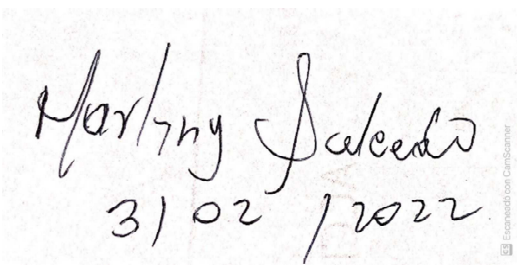 Marlyny Salcedo
3/02/2022
Escaneado con CamScanner